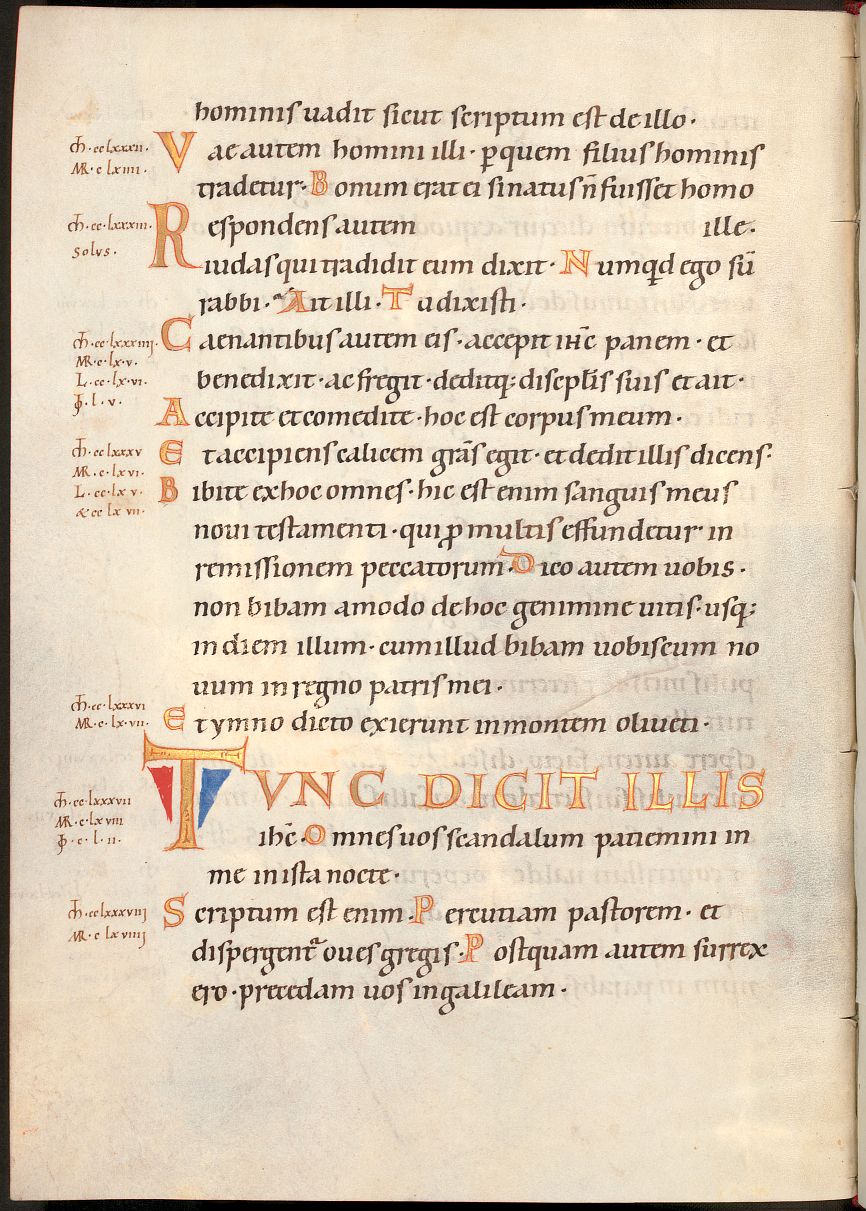 hominis uadit sicut scriptum est de illo·
m̄·cclxxxii·
MR·clxiiii·
Vae autem homini illi· ꝑquem filius hominis
tradetur· Bonum erat ei si natus n̄ fuisset homo
m̄·cc·lxxxiii·
solus·
Respondens autem ille·
iudas qui tradidit eum dixit· Numqd ego sū
rabbi· Ait illi· Tu dixisti·
m̄·cc·lxxxiiii·
MR·c·lx·v·
L·cc·lx·vi·
Caenantibus autem eis· accepit ihc panem· et
benedixit· ac fregit· deditq; discipłis suis et ait·
Accipite et comedite· hoc est corpus meum·
m̄·cc·lxxxv
MR·c·lxvi·
L·cc·lxv·
Et accipiens calicem gr̄as egit· et dedit illis dicens·
Bibite ex hoc omnes· hic est enim sanguis meus
noui testamenti· qui ꝓ multis effundetur in
remissionem peccatorum· Dico autem uobis·
non bibam amodo de hoc genimine uitis· usq;
in diem illum· cum illud bibam uobiscum no
uum in regno patris mei·
m̄·cc·lxxxvi
MR·c·lx·vii·
Et ymno dicto exierunt in montem oliueti·
m̄·cc·lxxxvii
MR·c·lxviii
TVNC DICIT ILLIS
ihc· Omnes uos scandalum patiemini in
me in ista nocte·
m̄·cclxxxviii
MR·c·lxviiii
Scriptum est enim· Percutiam pastorem· et
dispergent᷑ oues gregis· Postquam autem surrex
ero· precedam uos in galileam·